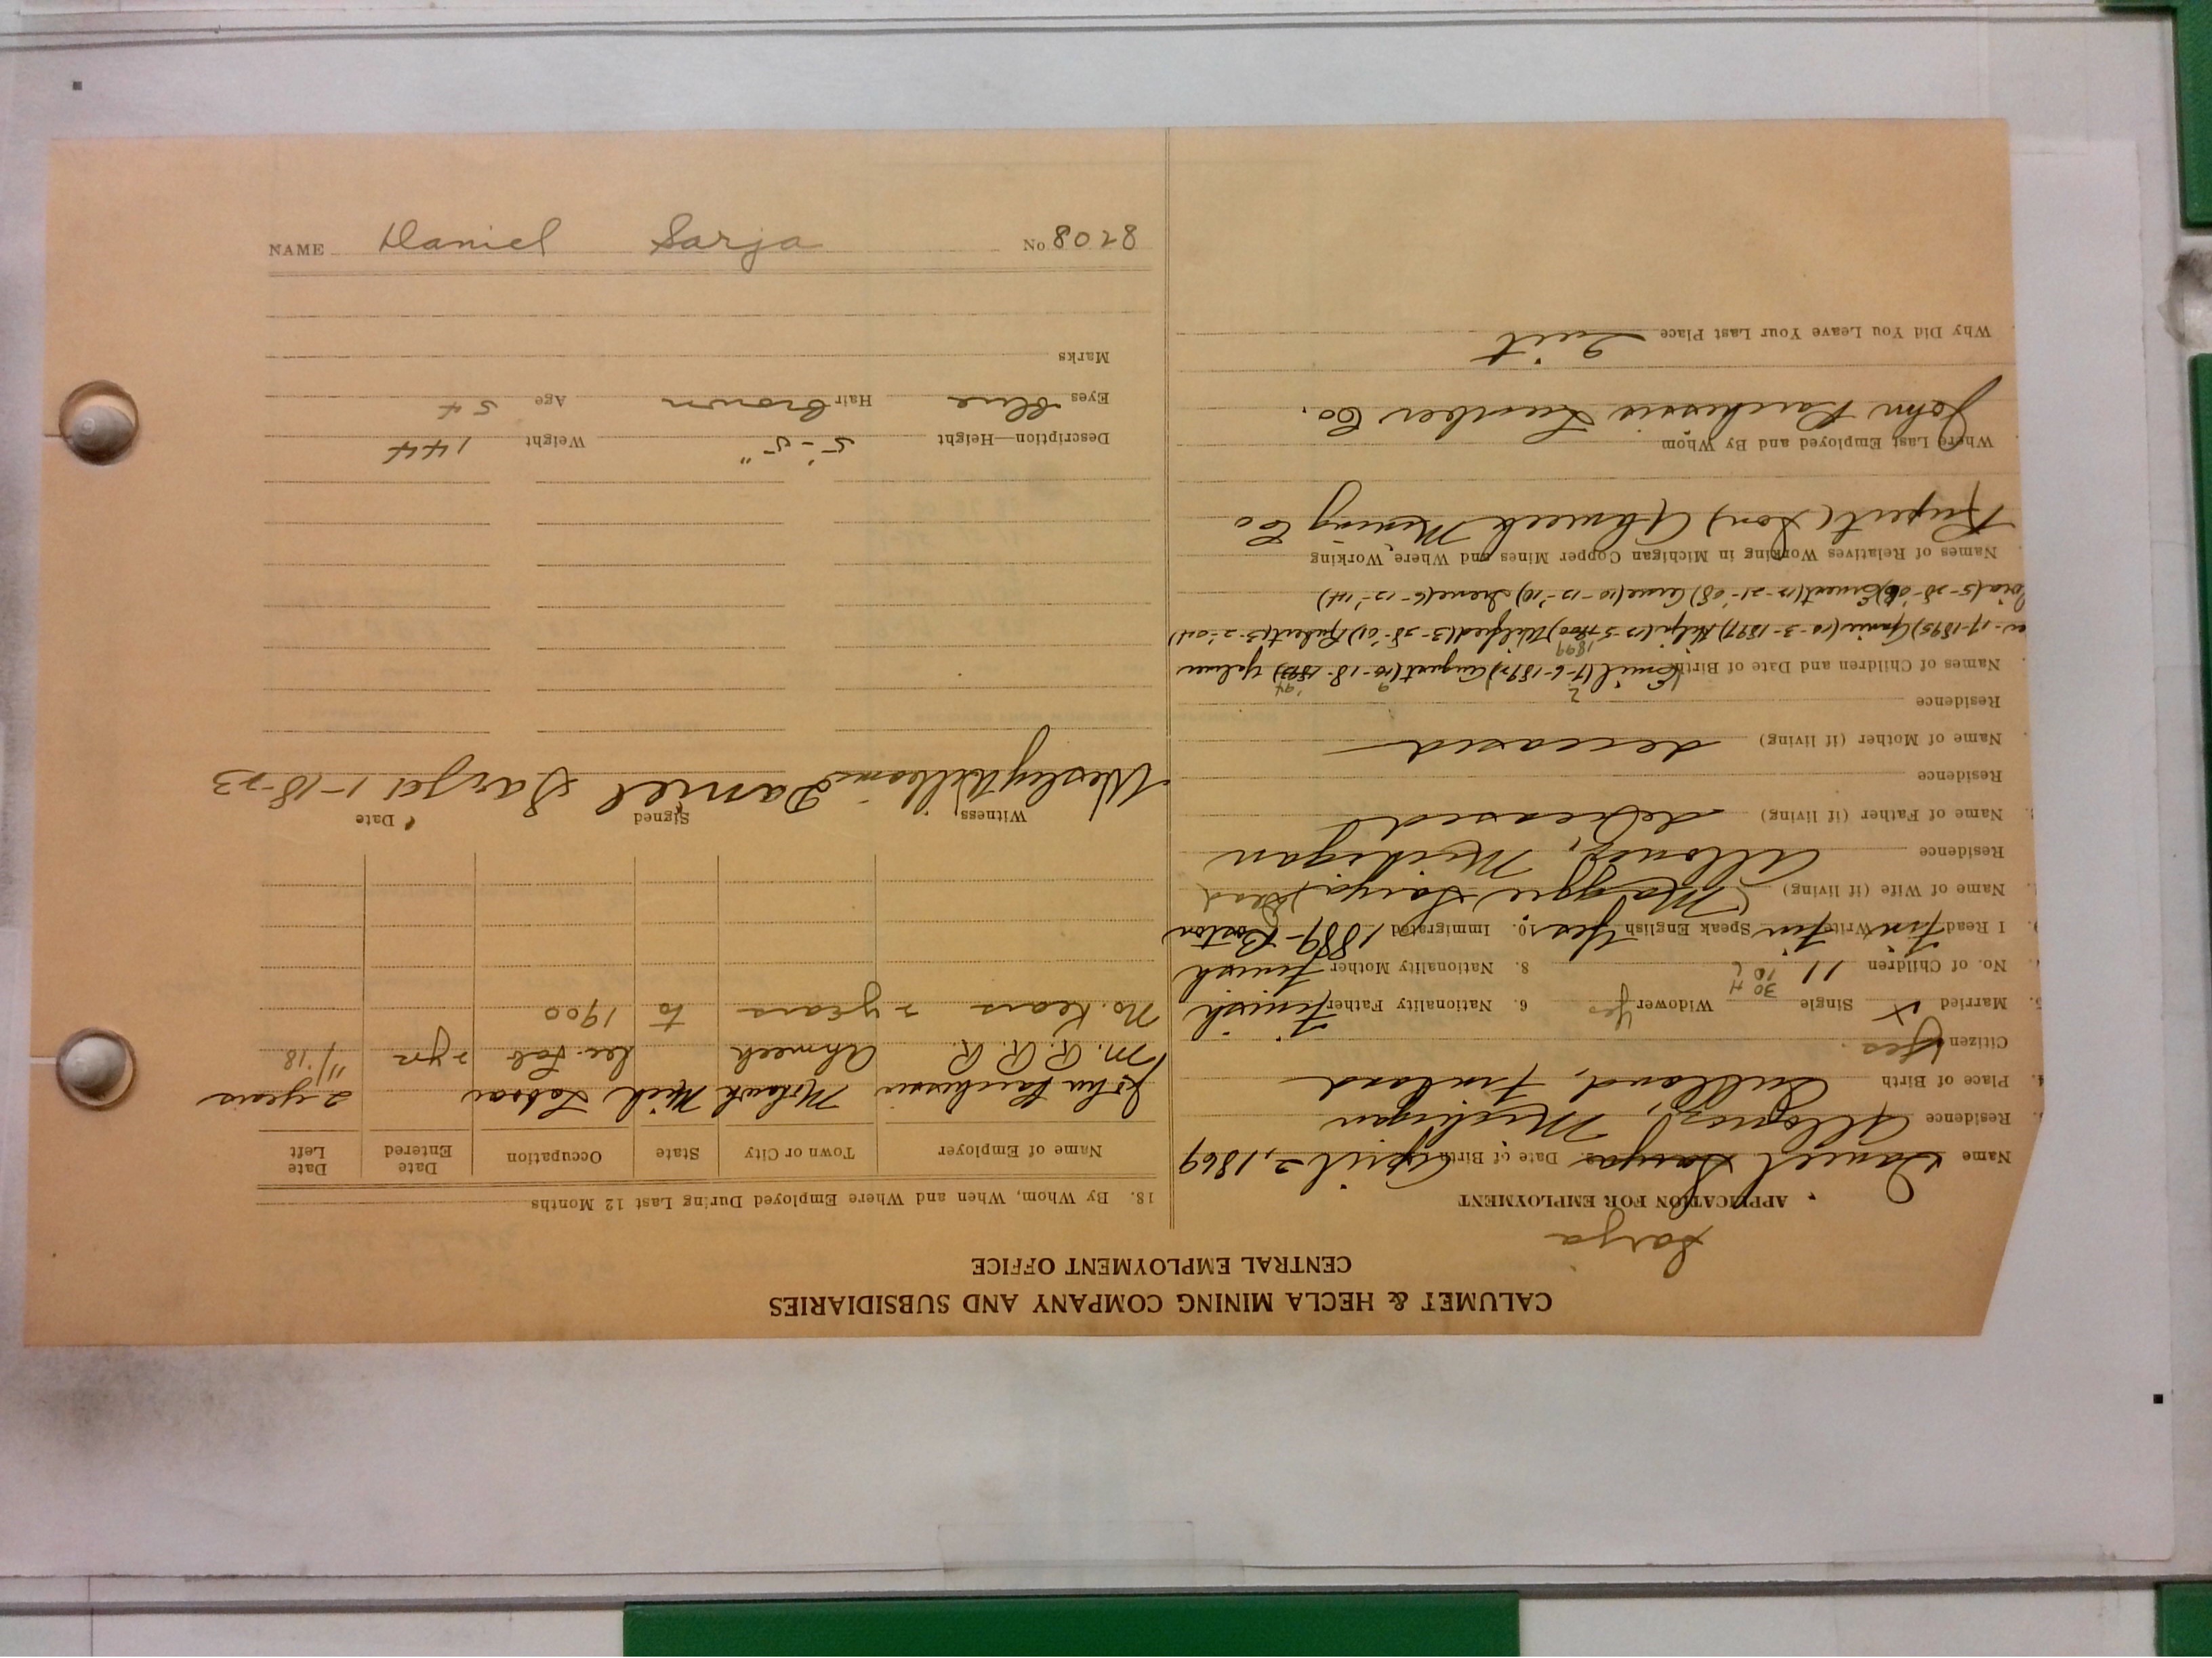 CALUMET & HECLA MINING COMPANY AND SUBSIDIARIES
CENTRAL EMPLOYMENT OFFICE
Sarja
APPLICATION FOR EMPLOYMENT
Name Daniel Sarja 2. Date of Birth April 2, 1869
Residence Allouez, Michigan
4. Place of Birth Finland
Citizen Yes.
5. Married x Single Widower Yes 6. Nationality Father Finnish
30 H
7. No. of Children 11 10 8. Nationality Mother Finnish
9. I Read Fin Write Fin Speak English Yes 10. Immigrated 1889 - Boston
Name of Wife (if living) (Maggie Sarja) Dead
Residence Allouez, Michigan
Name of Father (if living) deceased
Residence
Name of Mother (if living) deceased
Residence
Names of Children and Date of Birth Emil August (10-18-
(10-3-1897) (3-28-'01) (3-2-'04)
(5-28-'06) Ernest (12-21-'08) (10-12-'10) Irene (6-12-'14)
Names of Relatives Working in Michigan Copper Mines and Where Working
(Son) Ahmeek Mining Co
Where Last Employed and By Whom
John Lumber Co.
Why Did You Leave Your Last Place Quit
18. By Whom, When and Where Employed During Last 12 Months
Name of Employer Town or City State Occupation Date Entered Date Left
John Mohawk Mich Labor 2 years
M. C. R. R. Ahmeek Sec. Lab 2 yr 11/18
No. Kears 2 years to 1900
Witness Signed Date
Wesley Williams Daniel Sarja 1-18-23
Description—Height 5'-5" Weight 144
Eyes Blue Hair Brown Age 54
Marks
NAME Daniel Sarja No 8028